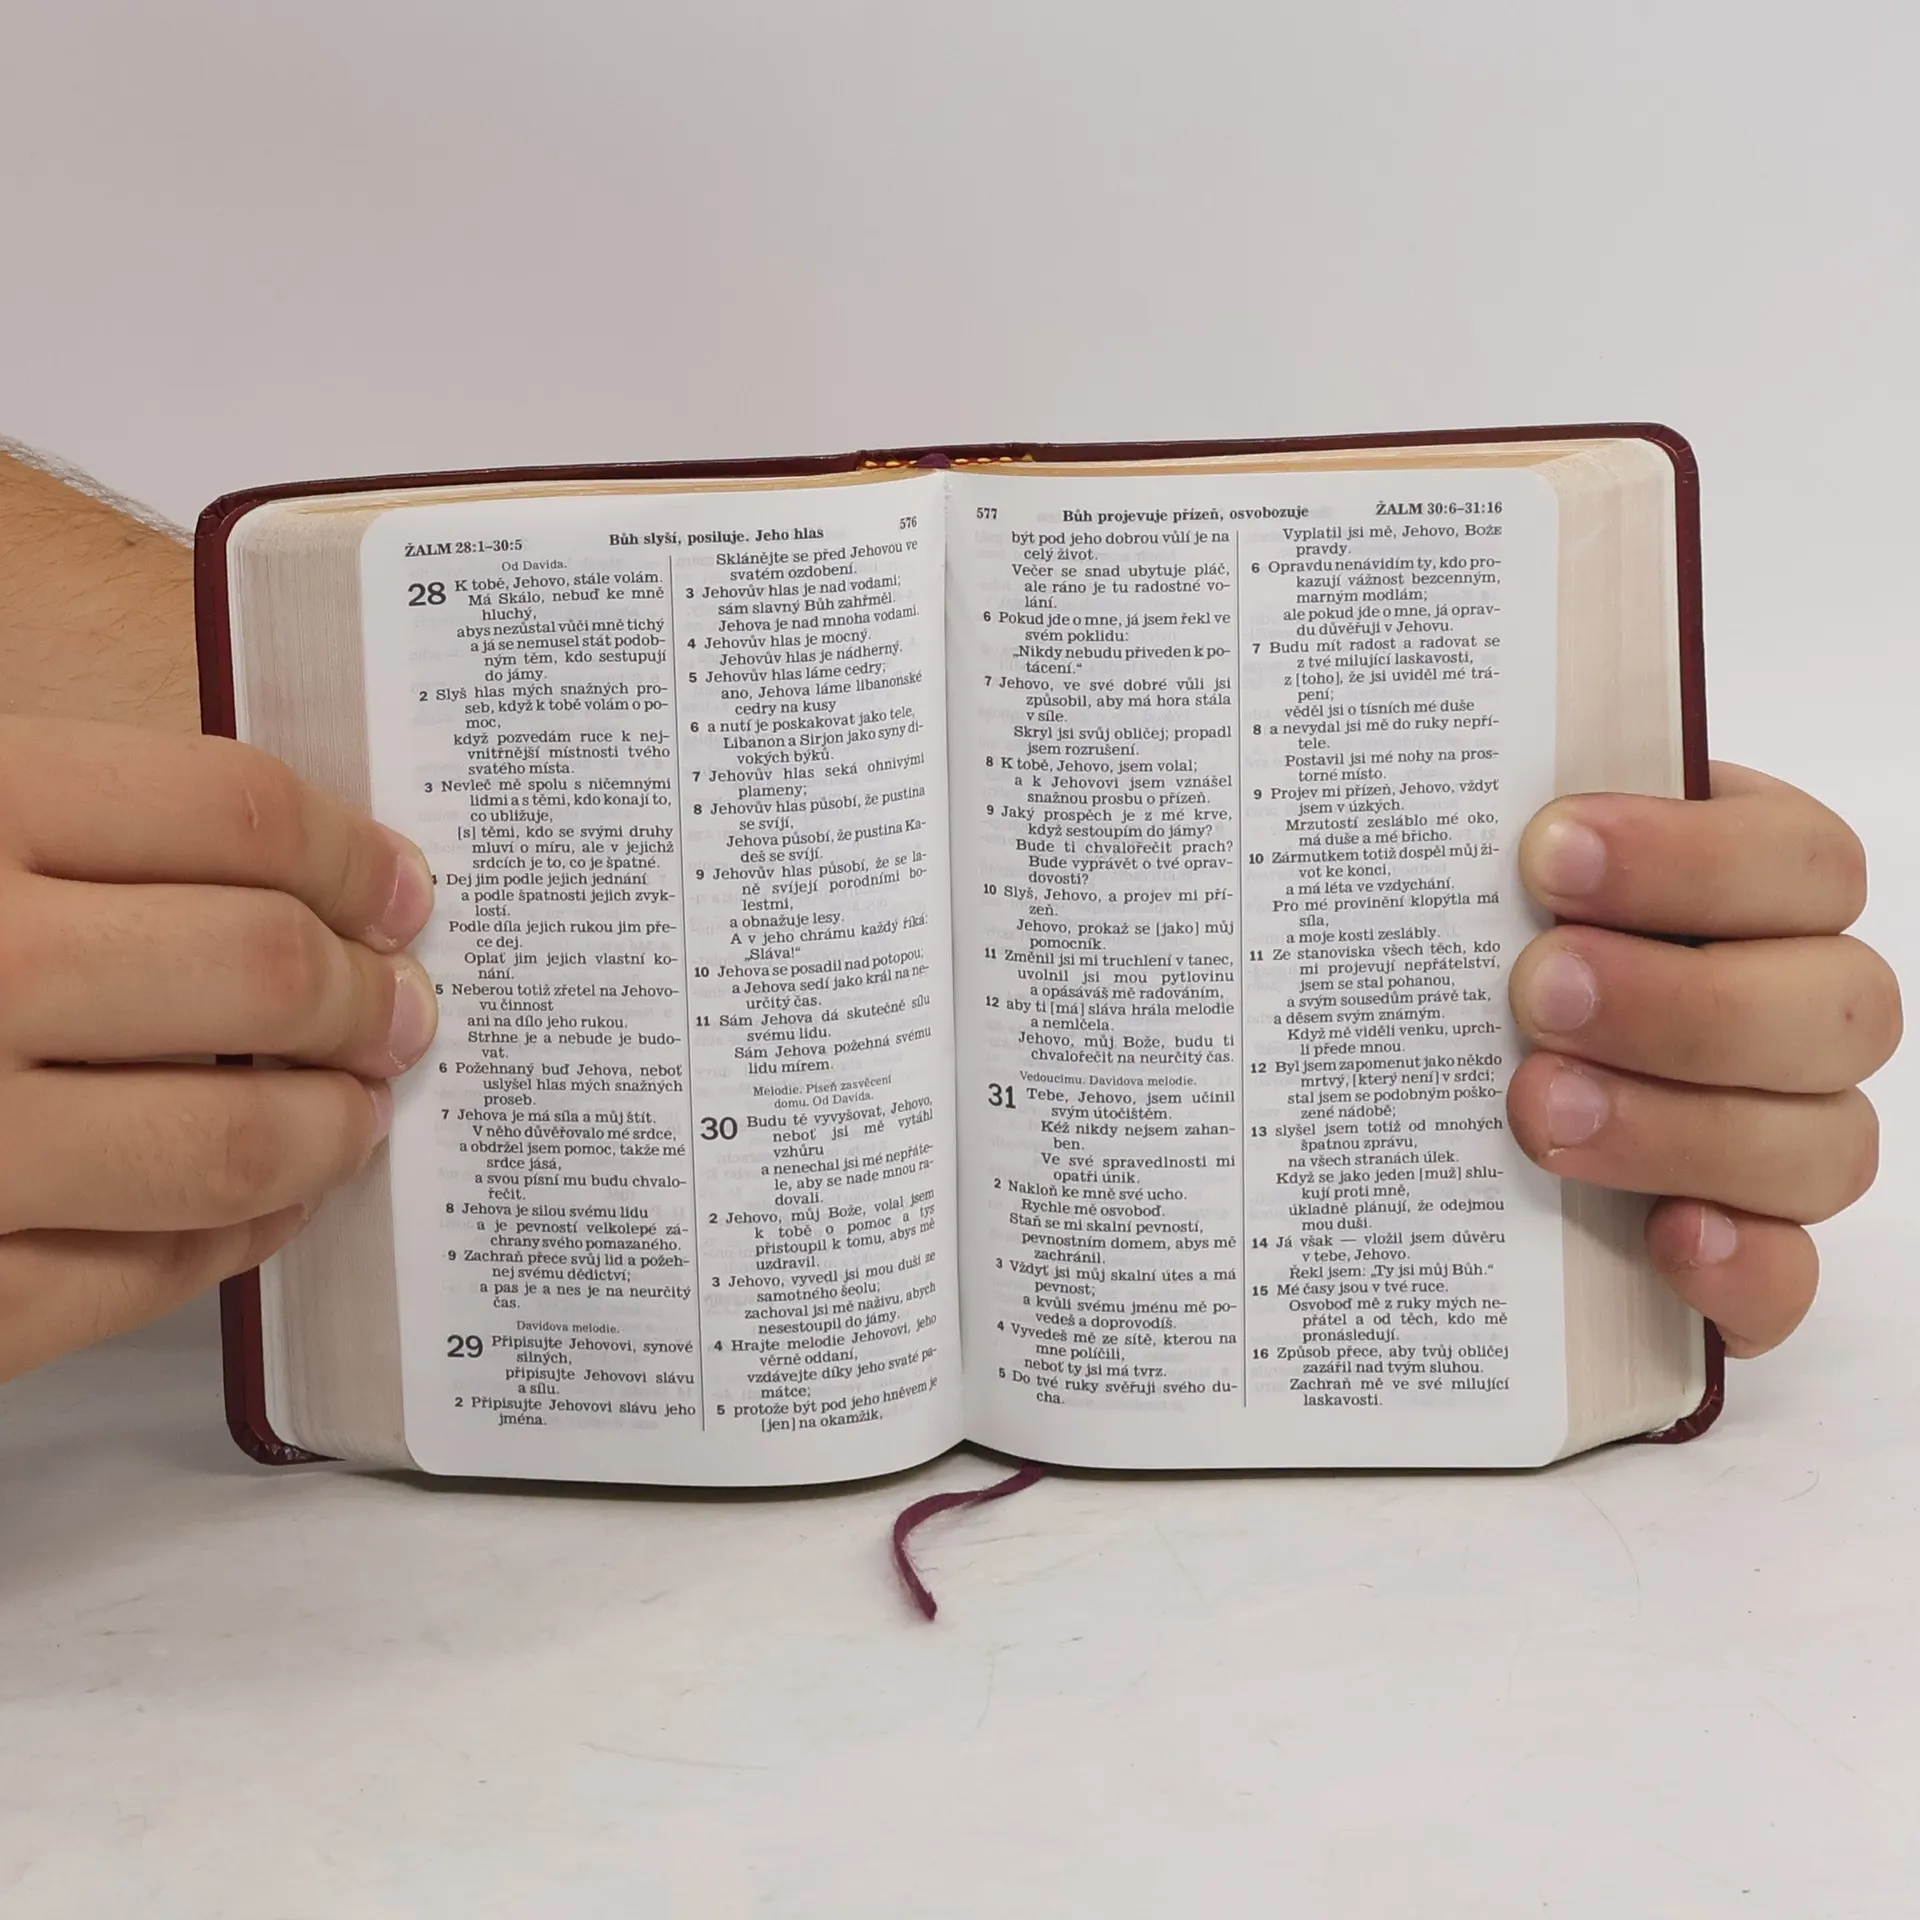 ŽALM 28:1–30:5
Bůh slyší, posiluje. Jeho hlas
576
Od Davida.
28 K tobě, Jehovo, stále volám.
Má Skálo, nebuď ke mně
hluchý,
abys nezůstal vůči mně tichý
a já se nemusel stát podob-
ným těm, kdo sestupují
do jámy.
2 Slyš hlas mých snažných pro-
seb, když k tobě volám o po-
moc,
když pozvedám ruce k nej-
vnitřnější místnosti tvého
svatého místa.
3 Nevleč mě spolu s ničemnými
lidmi a s těmi, kdo konají to,
co ubližuje,
[s] těmi, kdo se svými druhy
mluví o míru, ale v jejichž
srdcích je to, co je špatné.
4 Dej jim podle jejich jednání
a podle špatnosti jejich zvyk-
lostí.
Podle díla jejich rukou jim pře-
ce dej.
Oplať jim jejich vlastní ko-
nání.
5 Neberou totiž zřetel na Jehovo-
vu činnost
ani na dílo jeho rukou.
Strhne je a nebude je budo-
vat.
6 Požehnaný buď Jehova, neboť
uslyšel hlas mých snažných
proseb.
7 Jehova je má síla a můj štít.
V něho důvěřovalo mé srdce,
a obdržel jsem pomoc, takže mé
srdce jásá,
a svou písní mu budu chvalo-
řečit.
8 Jehova je silou svému lidu
a je pevností velkolepé zá-
chrany svého pomazaného.
9 Zachraň přece svůj lid a požeh-
nej svému dědictví;
a pas je a nes je na neurčitý
čas.
Davidova melodie.
29 Připisujte Jehovovi, synové
silných,
připisujte Jehovovi slávu
a sílu.
2 Připisujte Jehovovi slávu jeho
jména.
Sklánějte se před Jehovou ve
svatém ozdobení.
3 Jehovův hlas je nad vodami;
sám slavný Bůh zahřměl.
Jehova je nad mnoha vodami.
4 Jehovův hlas je mocný.
Jehovův hlas je nádherný.
5 Jehovův hlas láme cedry;
ano, Jehova láme libanonské
cedry na kusy
6 a nutí je poskakovat jako tele,
Libanon a Sirjon jako syny di-
vokých býků.
7 Jehovův hlas seká ohnivými
plameny;
8 Jehovův hlas působí, že pustina
se svíjí,
Jehova působí, že pustina Ka-
deš se svíjí.
9 Jehovův hlas působí, že se la-
ně svíjejí porodními bo-
lestmi,
a obnažuje lesy.
A v jeho chrámu každý říká:
„Sláva!“
10 Jehova se posadil nad potopou;
a Jehova sedí jako král na ne-
určitý čas.
11 Sám Jehova dá skutečně sílu
svému lidu.
Sám Jehova požehná svému
lidu mírem.
Melodie. Píseň zasvěcení
domu. Od Davida.
30 Budu tě vyvyšovat, Jehovo,
neboť jsi mě vytáhl
vzhůru
a nenechal jsi mé nepřáte-
le, aby se nade mnou ra-
dovali.
2 Jehovo, můj Bože, volal jsem
k tobě o pomoc a tys
přistoupil k tomu, abys mě
uzdravil.
3 Jehovo, vyvedl jsi mou duši ze
samotného šeolu;
zachoval jsi mě naživu, abych
nesestoupil do jámy.
4 Hrajte melodie Jehovovi, jeho
věrně oddaní,
vzdávejte díky jeho svaté pa-
mátce;
5 protože být pod jeho hněvem je
[jen] na okamžik,
577
Bůh projevuje přízeň, osvobozuje
ŽALM 30:6–31:16
být pod jeho dobrou vůlí je na
celý život.
Večer se snad ubytuje pláč,
ale ráno je tu radostné vo-
lání.
6 Pokud jde o mne, já jsem řekl ve
svém poklidu:
„Nikdy nebudu přiveden k po-
tácení.“
7 Jehovo, ve své dobré vůli jsi
způsobil, aby má hora stála
v síle.
Skryl jsi svůj obličej; propadl
jsem rozrušení.
8 K tobě, Jehovo, jsem volal;
a k Jehovovi jsem vznášel
snažnou prosbu o přízeň.
9 Jaký prospěch je z mé krve,
když sestoupím do jámy?
Bude ti chvalořečit prach?
Bude vyprávět o tvé oprav-
dovosti?
10 Slyš, Jehovo, a projev mi pří-
zeň.
Jehovo, prokaž se [jako] můj
pomocník.
11 Změnil jsi mi truchlení v tanec,
uvolnil jsi mou pytlovinu
a opásáváš mě radováním,
12 aby ti [má] sláva hrála melodie
a nemlčela.
Jehovo, můj Bože, budu ti
chvalořečit na neurčitý čas.
Vedoucímu. Davidova melodie.
31 Tebe, Jehovo, jsem učinil
svým útočištěm.
Kéž nikdy nejsem zahan-
ben.
Ve své spravedlnosti mi
opatři únik.
2 Nakloň ke mně své ucho.
Rychle mě osvoboď.
Staň se mi skalní pevností,
pevnostním domem, abys mě
zachránil.
3 Vždyť jsi můj skalní útes a má
pevnost;
a kvůli svému jménu mě po-
vedeš a doprovodíš.
4 Vyvedeš mě ze sítě, kterou na
mne políčili,
neboť ty jsi má tvrz.
5 Do tvé ruky svěřuji svého du-
cha.
Vyplatil jsi mě, Jehovo, BOŽE
pravdy.
6 Opravdu nenávidím ty, kdo pro-
kazují vážnost bezcenným,
marným modlám;
ale pokud jde o mne, já oprav-
du důvěřuji v Jehovu.
7 Budu mít radost a radovat se
z tvé milující laskavosti,
z [toho], že jsi uviděl mé trá-
pení;
věděl jsi o tísních mé duše
8 a nevydal jsi mě do ruky nepří-
tele.
Postavil jsi mé nohy na pros-
torné místo.
9 Projev mi přízeň, Jehovo, vždyť
jsem v úzkých.
Mrzutostí zesláblo mé oko,
má duše a mé břicho.
10 Zármutkem totiž dospěl můj ži-
vot ke konci,
a má léta ve vzdychání.
Pro mé provinění klopýtla má
síla,
a moje kosti zeslábly.
11 Ze stanoviska všech těch, kdo
mi projevují nepřátelství,
jsem se stal pohanou,
a svým sousedům právě tak,
a děsem svým známým.
Když mě viděli venku, uprch-
li přede mnou.
12 Byl jsem zapomenut jako někdo
mrtvý, [který není] v srdci;
stal jsem se podobným poško-
zené nádobě;
13 slyšel jsem totiž od mnohých
špatnou zprávu,
na všech stranách úlek.
Když se jako jeden [muž] shlu-
kují proti mně,
úkladně plánují, že odejmou
mou duši.
14 Já však — vložil jsem důvěru
v tebe, Jehovo.
Řekl jsem: „Ty jsi můj Bůh.“
15 Mé časy jsou v tvé ruce.
Osvoboď mě z ruky mých ne-
přátel a od těch, kdo mě
pronásledují.
16 Způsob přece, aby tvůj obličej
zazářil nad tvým sluhou.
Zachraň mě ve své milující
laskavosti.